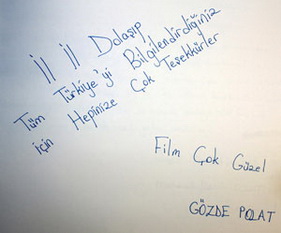 İl İl Dolaşıp
Tüm Türkiye'yi Bilgilendirdiğiniz
için Hepinize Çok Teşekkürler
Film Çok Güzel
GÖZDE POLAT